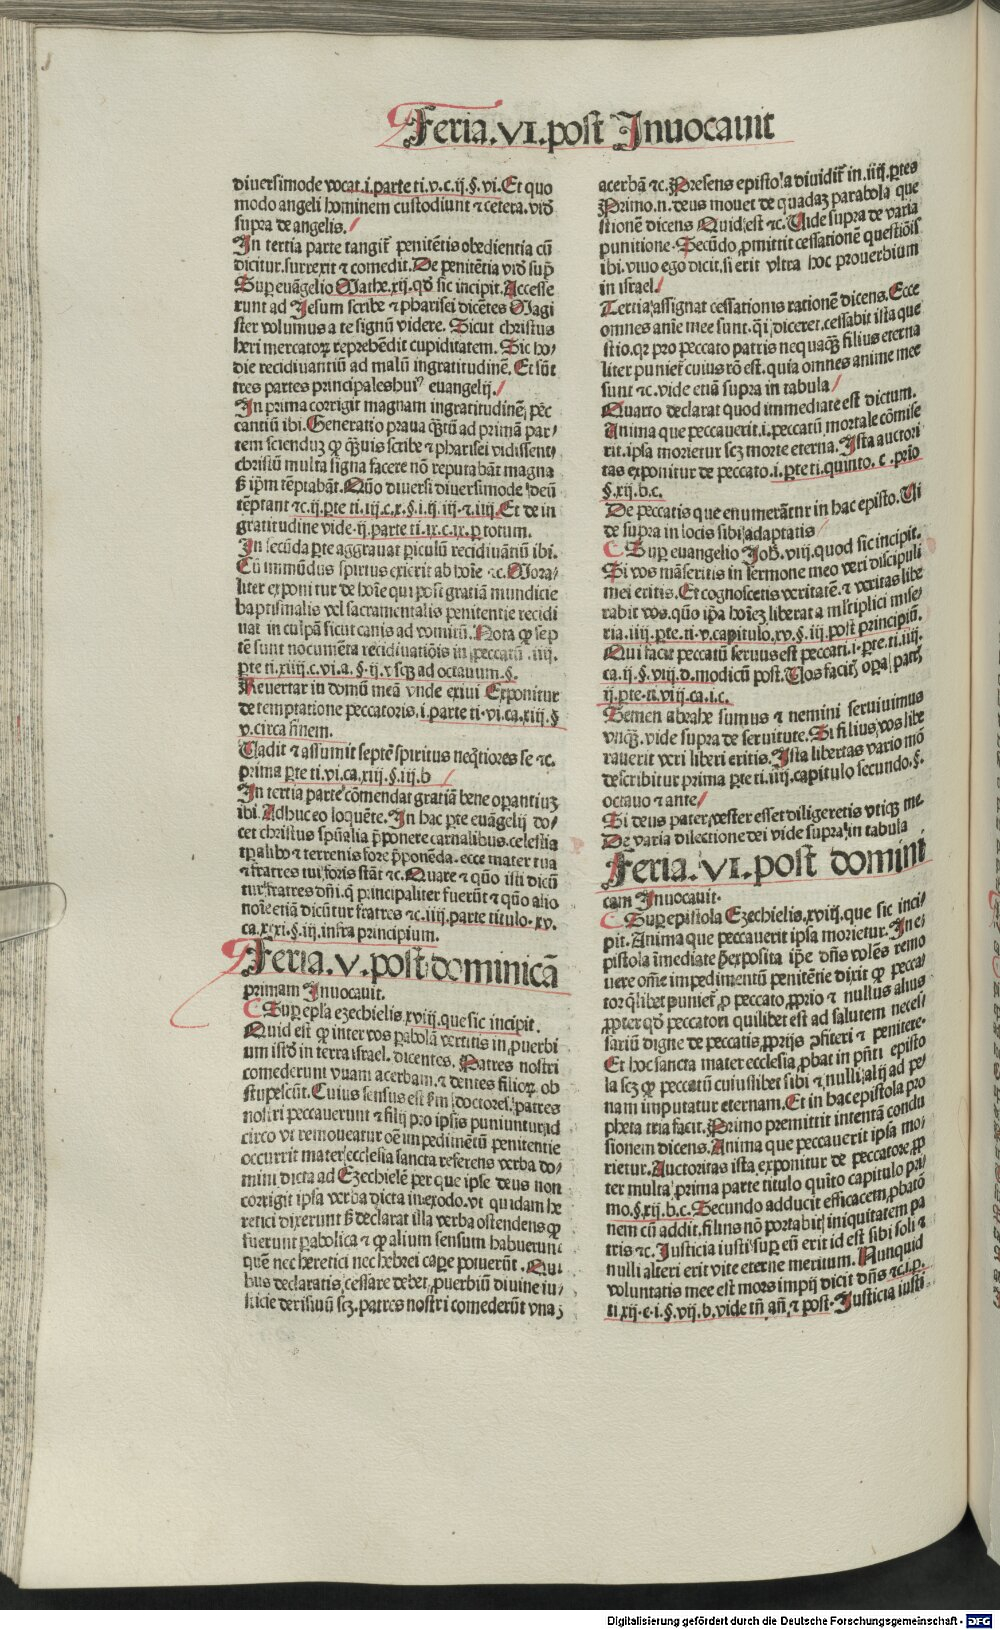 Feria.VI.post Inuocauit
diuersimode vocat.i.parte ti.v.c.ij.§.vi.Et quo
modo angeli hominem custodiunt ⁊ cetera.vid̄
supra de angelis.
In tertia parte tangit᷑ penitētis obedientia cū
dicitur.surrexit ⁊ comedit.De penitētia vid̄ sup̄
Sup euāgelio Mathe.xij.qd̄ sic incipit.Accesse
runt ad Jesum scribe ⁊ pharisei dicētes Magi
ster volumus a te signū videre. Sicut christus
heri mercatoꝝ reprehēdit cupiditatem. Sic ho/
die recidiuantiū ad malū ingratitudinē.Et sūt
tres partes principales huiꝰ euangelij.
In prima corrigit magnam ingratitudinē pec̄
cantiū ibi.Generatio praua q̄ꝫtū ad primā par/
tem scienduꝫ ꝙ q̄ꝫuis scribe ⁊ pharisei vidissent
christū multa signa facere nō reputabāt magna
sꝫ ip̄m tēptabāt.Quō diuersi diuersimode deū
tēptant ⁊c.ij.ꝑte ti.iij.c.x.§.i.ij.iij.⁊.iiij.Et de in
gratitudine vide.ij.parte ti.ix.c.ix.ꝑ totum.
In secūda ꝑte aggrauat ꝑiculū recidiuātiū ibi.
Cū immūdus spiritus exierit ab hoīe ⁊c.Mora/
liter exponitur de hoīe qui post gratiā mundicie
baptismalis vel sacramentalis penitentie recidi
uat in culpā sicut canis ad vomitū.Nota ꝙ sep
tē sunt nocumēta recidiuatiōis in peccatū.iiij.
ꝑte ti.xiiij.c.vi.a.§.ij.vsqꝫ ad octauum.§.
Reuertar in domū meā vnde exiui Exponitur
de temptatione peccatoris.i.parte ti.vi.ca.xiij.§
v.circa finem.
Uadit ⁊ assumit septē spiritus neq̄tiores se ⁊c.
prima ꝑte ti.vi.ca.xiij.§.iij.b
In tertia parte cōmendat gratiā bene oꝑantiuꝫ
ibi.Adhuc eo loquēte.In hac ꝑte euāgelij do/
cet christus spūalia p̄ponere carnalibus.celestia
tꝑalibꝰ ⁊ terrenis fore p̄ponēda.ecce mater tua
⁊ fratres tui foris stāt ⁊c.Quare ⁊ quō isti dicū
tur fratres dn̄i.q̄ principaliter fuerūt ⁊ quō alio
noīe etiā dicūtur fratres ⁊c.iiij.parte titulo.xv.
ca.xxi.§.iij.infra principium.
Feria.V.post dominicā
primam Inuocauit.
Sup ep̄la ezechielis.xviij.que sic incipit.
Quid est ꝙ inter vos ꝑabolā vertitis in ꝓuerbi
um istd̄ in terra israel.dicentes. Patres nostri
comederunt vuam acerbam.⁊ dentes filioꝝ ob
stupescūt.Cuius sensus est sm̄ doctores.patres
nostri peccauerunt ⁊ filij pro ipsis puniuntur.id
circo vt remoueatur oē impedimētū penitentie
occurrit mater ecclesia sancta referens verba do/
mini dicta ad Ezechielē per que ipse deus non
corrigit ipsa verba dicta in exodo.vt quidam he
retici dixerunt sꝫ declarat illa verba ostendens ꝙ
fuerunt ꝑabolica ⁊ ꝙ alium sensum habuerunt
quē nec heretici nec hebrei caꝑe potuerūt. Qui
bus declaratis cessare debet ꝓuerbiū diuine iu/
sticie derisiuū scꝫ.patres nostri comederūt vuaꝫ
acerbā ⁊c.Presens epistola diuidit᷑ in.iiij.ꝑtes
Primo.n.deus mouet de quadaꝫ parabola que
stionē dicens Quid est ⁊c.Uide supra de varia
punitione.Secūdo ꝓmittit cessationē questiōis
ibi.viuo ego dicit.si erit vltra hoc prouerbium
in israel.
Tertia assignat cessationis rationē dicens.Ecce
omnes aīe mee sunt.q̄i diceret.cessabit ista que
stio.qꝛ pro peccato patris nequaq̄ꝫ filius eterna
liter puniet᷑ cuius rō est.quia omnes anime mee
sunt ⁊c.vide etiā supra in tabula
Quarto declarat quod immediate est dictum.
Anima que peccauerit.i.peccatū mortale cōmise
rit.ipsa morietur scꝫ morte eterna.Ista auctori
tas exponitur de peccato.i.ꝑte ti.quinto.c.prīo
§.xij.b.c.
De peccatis que enumerātur in hac episto.Ui
de supra in locis sibi adaptatis
Sup euangelio Joh.viij.quod sic incipit.
Si vos māseritis in sermone meo veri discipuli
mei eritis.Et cognoscetis veritatē.⁊ veritas libe
rabit vos.quō ip̄a hoīeꝫ liberat a mltiplici mise/
ria.iiij.ꝑte.ti.v.capitulo.xv.§.iij.post principiū.
Qui facit peccatū seruus est peccati.i.ꝑte.ti.iiij.
ca.ij.§.viij.d.modicū post.Uos facitꝭ oꝑa patꝝ
ij.ꝑte.ti.viij.ca.i.c.
Semen abrahe sumus ⁊ nemini seruiuimus
vnqꝫ.vide supra de seruitute.Si filius vos libe
rauerit veri liberi eritis.Ista libertas vario mō
describitur prima ꝑte ti.iiij.capitulo secundo.§.
octauo ⁊ ante
Si deus pater vester esset diligeretis vtiqꝫ me.
De varia dilectione dei vide supra in tabula
Feria.VI.post domini
cam Inuocauit.
Sup epistola Ezechielis.xviij.que sic inci/
pit.Anima que peccauerit ipsa morietur.In e/
pistola īmediate p̄exposita ip̄e dn̄s volēs remo
uere om̄e impedimentū penitētie dixit ꝙ pecca/
tor qͥlibet puniet᷑ ꝓ peccato ꝓprio ⁊ nullus alius
ꝓpter qd̄ peccatori quilibet est ad salutem neces/
sariū digne de peccatis ꝓprijs ꝯfiteri ⁊ penitere.
Et hoc sancta mater ecclesia ꝓbat in pn̄ti episto
la scꝫ ꝙ peccatū cuiuslibet sibi ⁊ nulli alij ad pe/
nam imputatur eternam.Et in hac epistola pro
pheta tria facit.Primo premittit intentā conclu
sionem dicens.Anima que peccauerit ipsa mo/
rietur.Auctoritas ista exponitur de peccatore ꝓp
ter multa prima parte titulo quīto capitulo pri/
mo.§.xij.b.c.Secundo adducit efficacem ꝓbatō
nem cū addit.filius nō portabit iniquitatem pa
tris ⁊c.Justicia iusti suꝑ eū erit id est sibi soli ⁊
nulli alteri erit vite eterne meritum.Nunquid
voluntatis mee est mors impij dicit dn̄s ⁊c.i.p.
ti.xij.c.i.§.vij.b.vide tn̄ an̄.⁊ post.Justicia iusti/
Digitalisierung gefördert durch die Deutsche Forschungsgemeinschaft - DFG